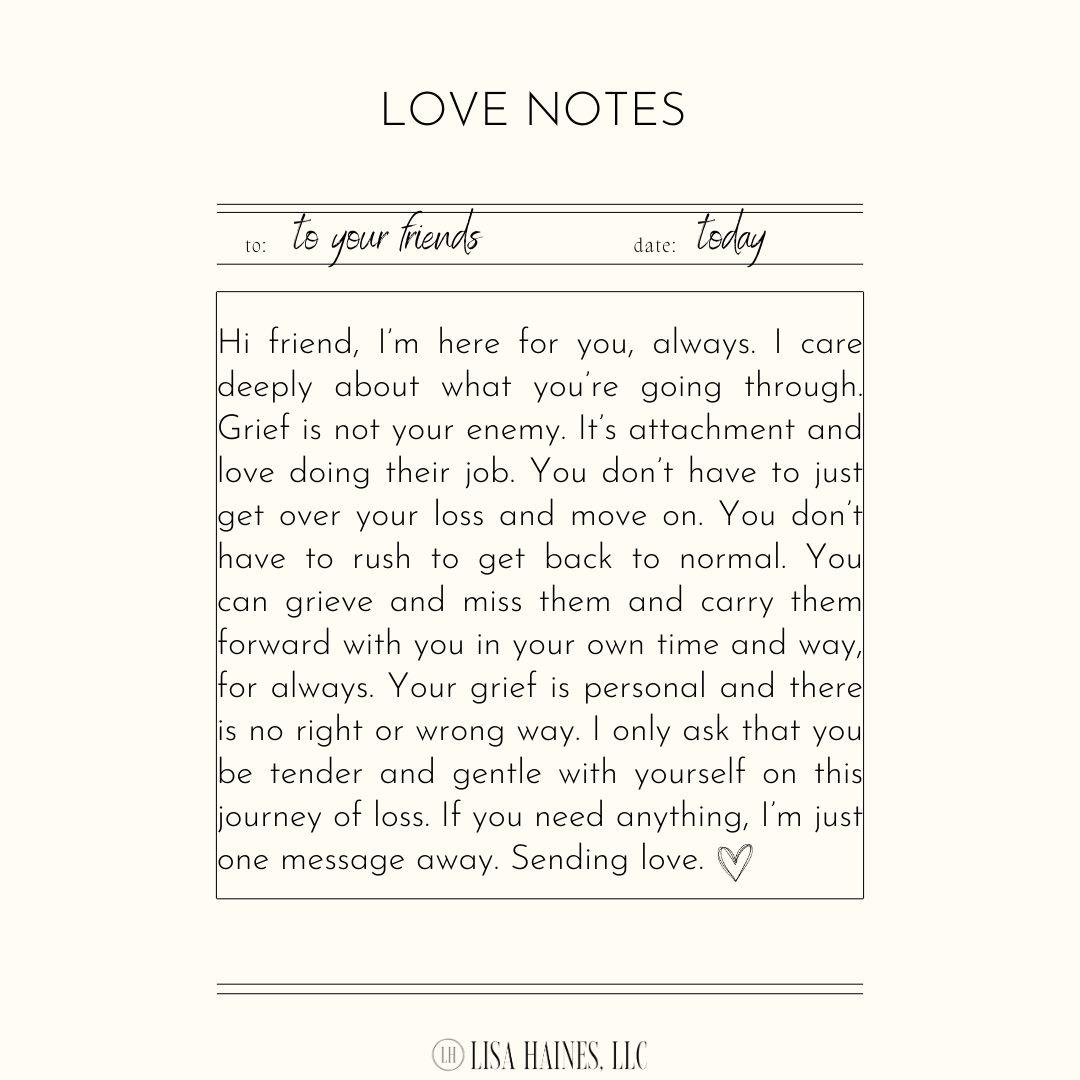 LOVE NOTES
to: to your friends date: today
Hi friend, I'm here for you, always. I care
deeply about what you're going through.
Grief is not your enemy. It's attachment and
love doing their job. You don't have to just
get over your loss and move on. You don't
have to rush to get back to normal. You
can grieve and miss them and carry them
forward with you in your own time and way,
for always. Your grief is personal and there
is no right or wrong way. I only ask that you
be tender and gentle with yourself on this
journey of loss. If you need anything, I'm just
one message away. Sending love.
LH LISA HAINES, LLC